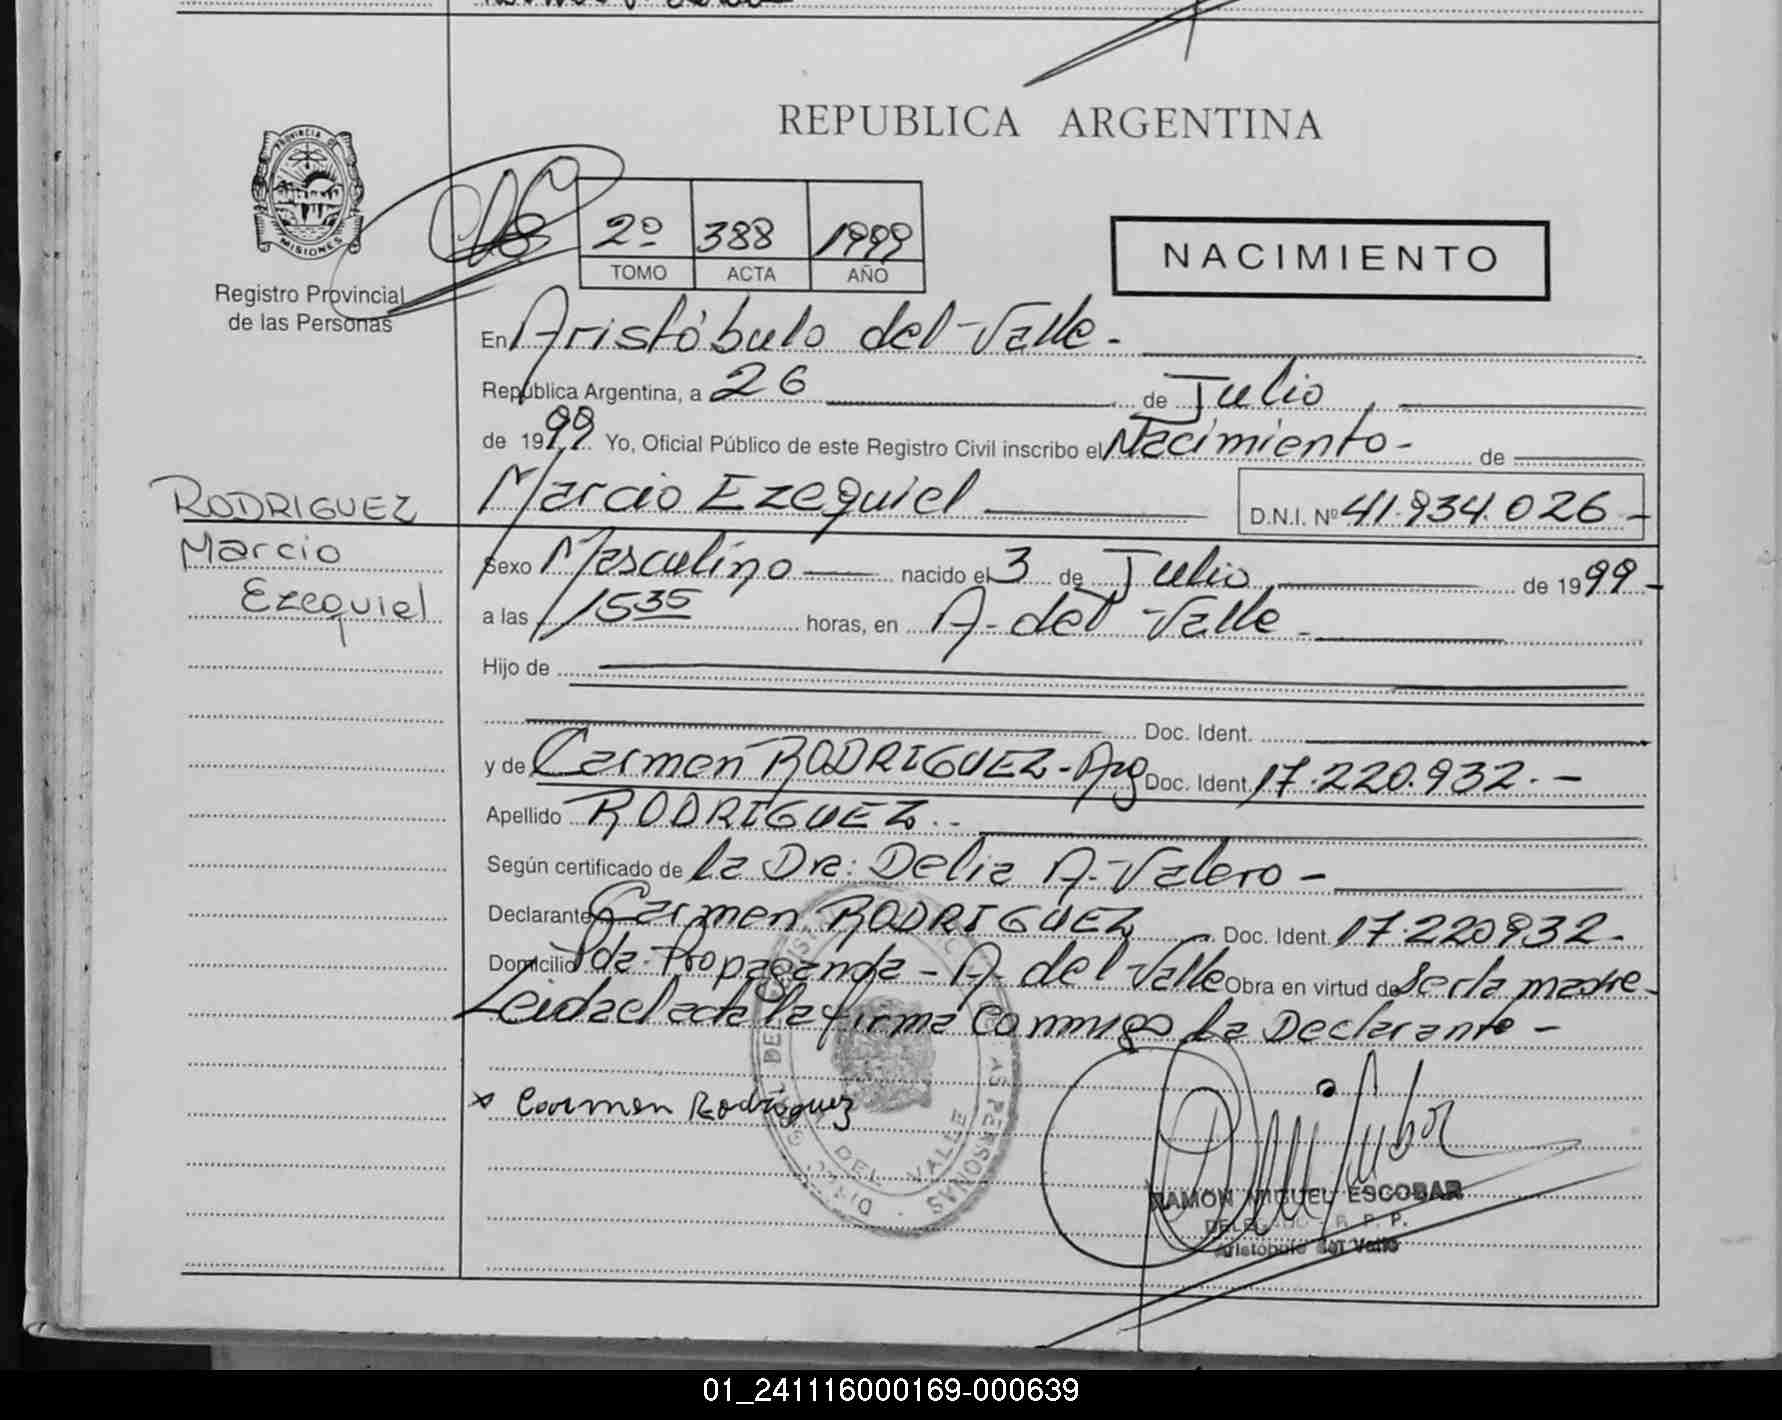 REPUBLICA ARGENTINA
PROVINCIA DE
MISIONES
Registro Provincial
de las Personas
2º 388 1999
TOMO ACTA AÑO
NACIMIENTO
En Aristóbulo del Valle.-
República Argentina, a 26 de Julio
de 1999 Yo, Oficial Público de este Registro Civil inscribo el Nacimiento- de
RODRIGUEZ
Marcio
Ezequiel
Marcio Ezequiel D.N.I. Nº 41.934.026-
Sexo Masculino nacido el 3 de Julio de 1999-
a las 15 35 horas, en A. del Valle-
Hijo de
Doc. Ident.
y de Carmen RODRIGUEZ-Arg Doc. Ident. 17.220.932.-
Apellido RODRIGUEZ.-
Según certificado de la Dra: Delia A. Valero-
Declarante Carmen RODRIGUEZ Doc. Ident. 17.220932-
Domicilio Pda. Propaganda - A. del Valle Obra en virtud de Ser la madre-
Leida el acta la firma conmigo La Declarante-
x Carmen Rodriguez
RAMON MIGUEL ESCOBAR
DELEGADO - R. P. P.
Aristóbulo del Valle
01_241116000169-000639